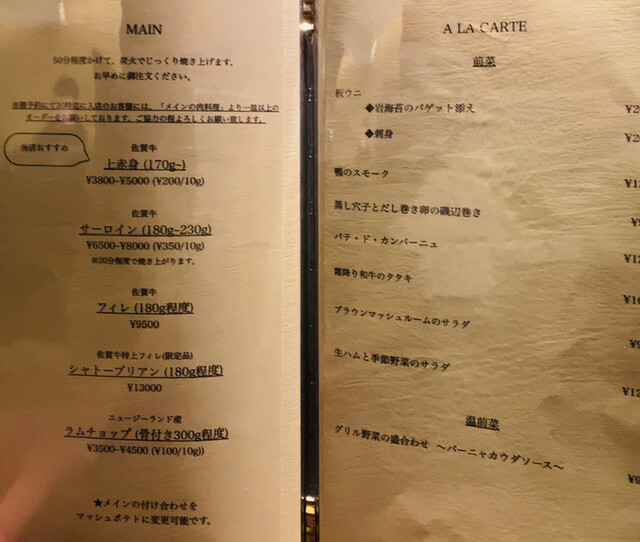 MAIN
50分程度かけて、炭火でじっくり焼き上げます。
お早めに御注文ください。
オーダーをお願いしております。ご協力の程よろしくお願い致します。
当店おすすめ
佐賀牛
上赤身 (170g~)
¥3800~¥5000 (¥200/10g)
佐賀牛
サーロイン (180g~230g)
¥6500~¥8000 (¥350/10g)
※20分程度で焼き上がります。
佐賀牛
フィレ (180g程度)
¥9500
佐賀牛特上フィレ(限定品)
シャトーブリアン (180g程度)
¥13000
ニュージーランド産
ラムチョップ (骨付き300g程度)
¥3500~¥4500 (¥100/10g))
★メインの付け合わせを
マッシュポテトに変更可能です。
A LA CARTE
前菜
板ウニ
◆岩海苔のバゲット添え
◆刺身
鴨のスモーク
蒸し穴子とだし巻き卵の磯辺巻き
パテ・ド・カンパーニュ
霜降り和牛のタタキ
ブラウンマッシュルームのサラダ
生ハムと季節野菜のサラダ
温前菜
グリル野菜の盛合わせ ～バーニャカウダソース～